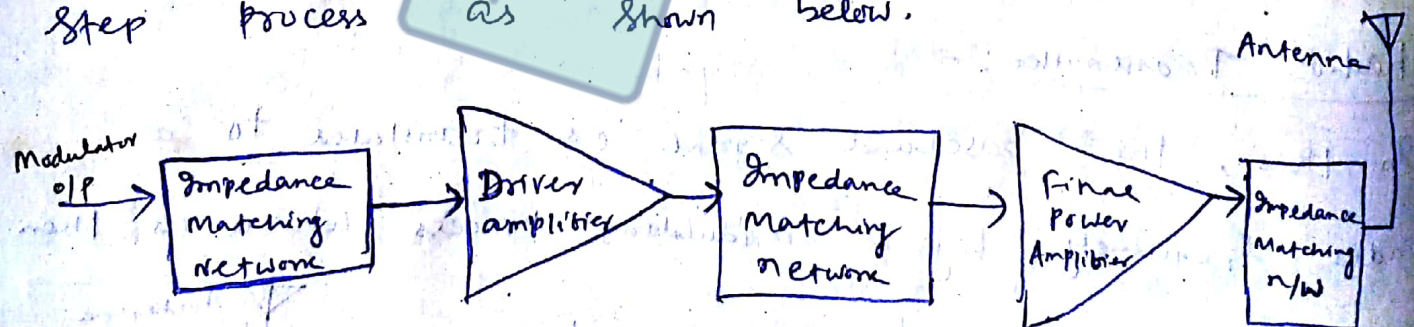 Step process as shown below.
Antenna
Modulator
o/p
Impedance
Matching
Network
Driver
amplifier
Impedance
Matching
network
Final
Power
Amplifier
Impedance
Matching
n/w